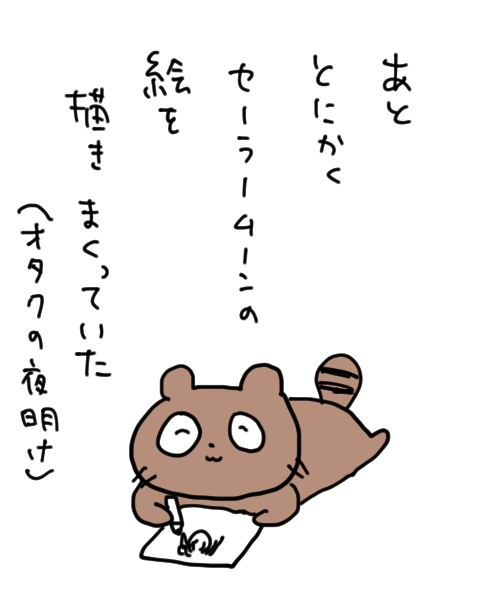 あと
とにかく
セーラームーンの
絵を
描きまくっていた
(オタクの夜明け)